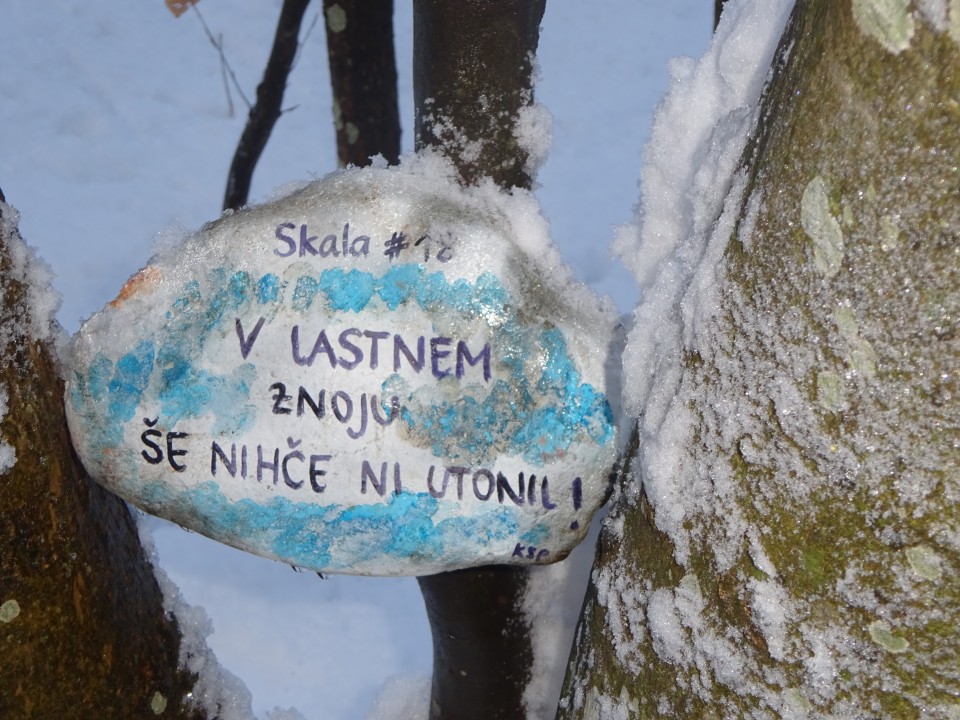 Skala #18
V LASTNEM
ZNOJU
ŠE NIHČE NI UTONIL!